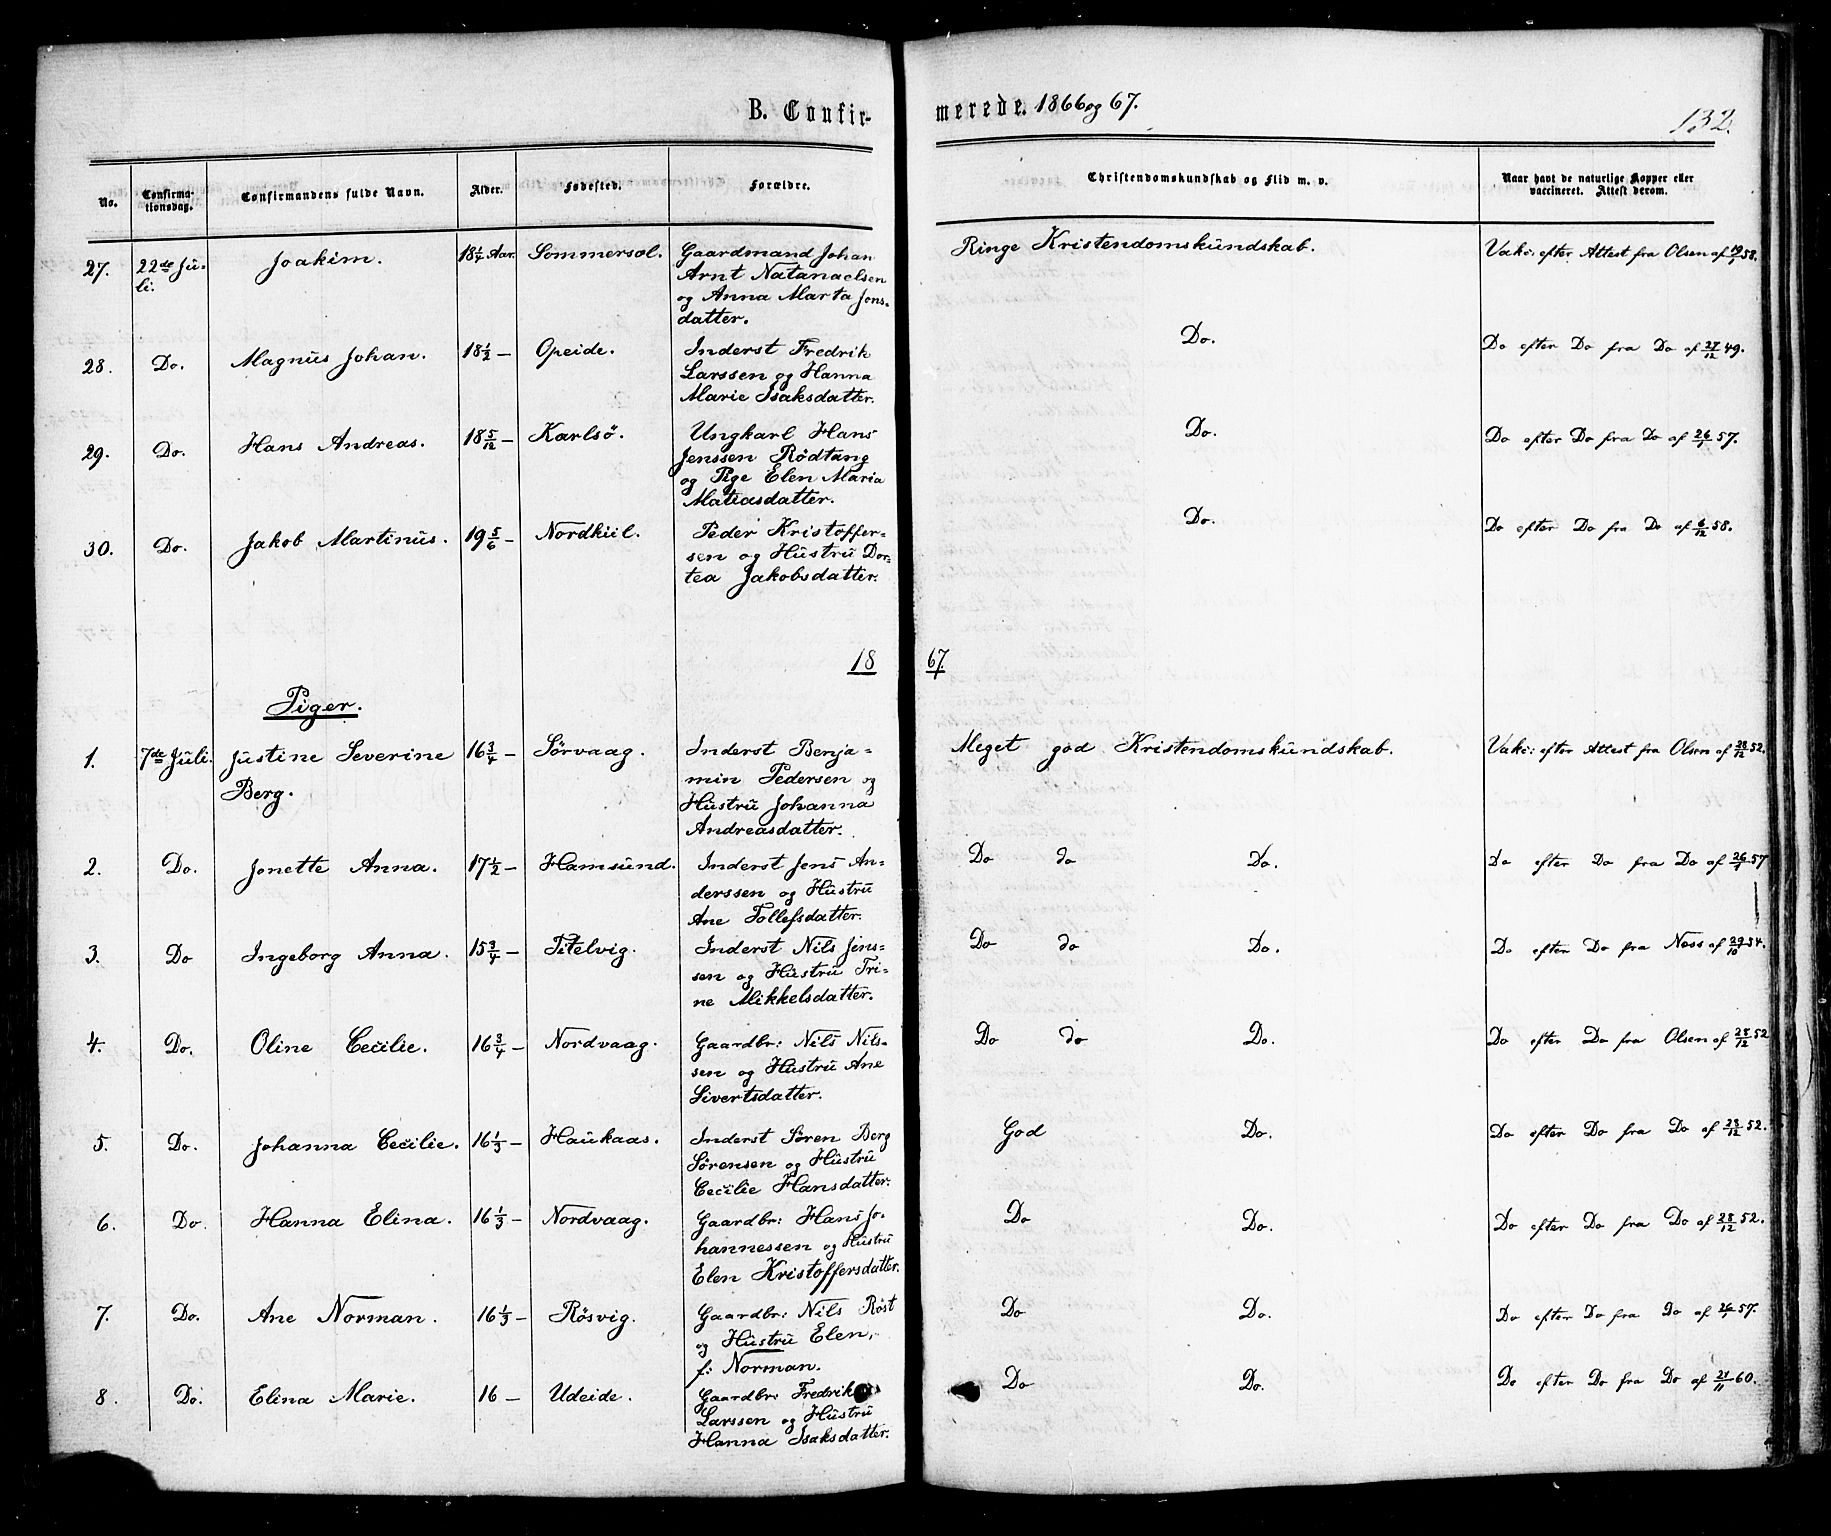 B. Confirmerede. 1866 og 67.
132.
No. Confirmationsdag. Confirmandens fulde Navn. Alder. Fødested. Forældre. Christendomskundskab og Flid m. v. Naar havt de naturlige Kopper eller vaccineret. Attest derom.
27. 22de Juli. Joakim. 18 1/4 Aar. Sommersæl. Gaardmand Johan Arnt Natanaelsen og Anna Marta Jensdatter. Ringe Kristendomskundskab. Vakc: efter Attest fra Olsen af 19/1 58.
28. Do. Magnus Johan. 18 1/2 — Opeide. Inderst Fredrik Larssen og Hanna Marie Isaksdatter. Do. Do efter Do fra Do af 27/12 49.
29. Do. Hans Andreas. 18 5/12 — Karlsö. Ungkarl Hans Jenssen Rödtang og Pige Elen Maria Matiasdatter. Do. Do efter Do fra Do af 26/1 57.
30. Do. Jakob Martinus. 19 5/6 — Nordkiil. Peder Kristoffersen og Hustru Dortea Jakobsdatter. Do. Do efter Do fra Do af 6/12 58.
1867.
Piger.
1. 7de Juli. Justine Severine Berg. 16 3/4 — Sørvaag. Inderst Benjamin Pedersen og Hustru Johanna Andreasdatter. Meget god Kristendomskundskab. Vakc: efter Attest fra Olsen af 28/12 52.
2. Do. Jonette Anna. 17 1/2 — Hamsund. Inderst Jens Anderssen og Hustru Ane Tollefsdatter. Do do Do. Do efter Do fra Do af 26/1 57
3. Do Ingeborg Anna. 15 3/4 — Titelvig. Inderst Nils Jenssen og Hustru Trine Mikkelsdatter. Do do Do. Do efter Do fra Ness af 29/10 54.
4. Do. Oline Cecilie. 16 3/4 — Nordvaag. Gaardbr: Nils Nilssen og Hustru Ane Sivertsdatter. Do do Do. Do efter Do fra Olsen af 28/12 52
5. Do. Johanna Cecilie. 16 1/3 — Haukaas. Inderst Søren Berg Sørensen og Hustru Cecilie Hansdatter. God Do. Do efter Do fra Do af 28/12 52.
6. Do. Hanna Elina. 16 1/3 — Nordvaag. Gaardbr: Hans Johannessen og Hustru Elen Kristoffersdatter. Do Do. Do efter Do fra Do af 28/12 52.
7. Do. Ane Norman. 16 1/3 — Røsvig. Gaardbr: Nils Røst og Hustru Elen, f: Norman. Do Do. Do efter Do fra Do af 26/1 57.
8. Do. Elina Marie. 16 — Udeide. Gaardbr: Fredrik Larssen og Hustru Hanna Isaksdatter. Do Do. Do efter Do fra Do af 21/11 60.